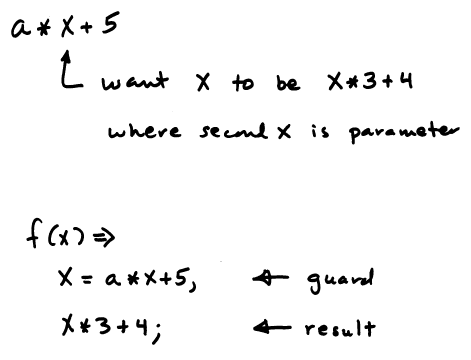 a * x + 5
want x to be x*3+4
where second x is parameter
f(x) ⇒
x = a*x+5, ← guard
x*3+4; ← result